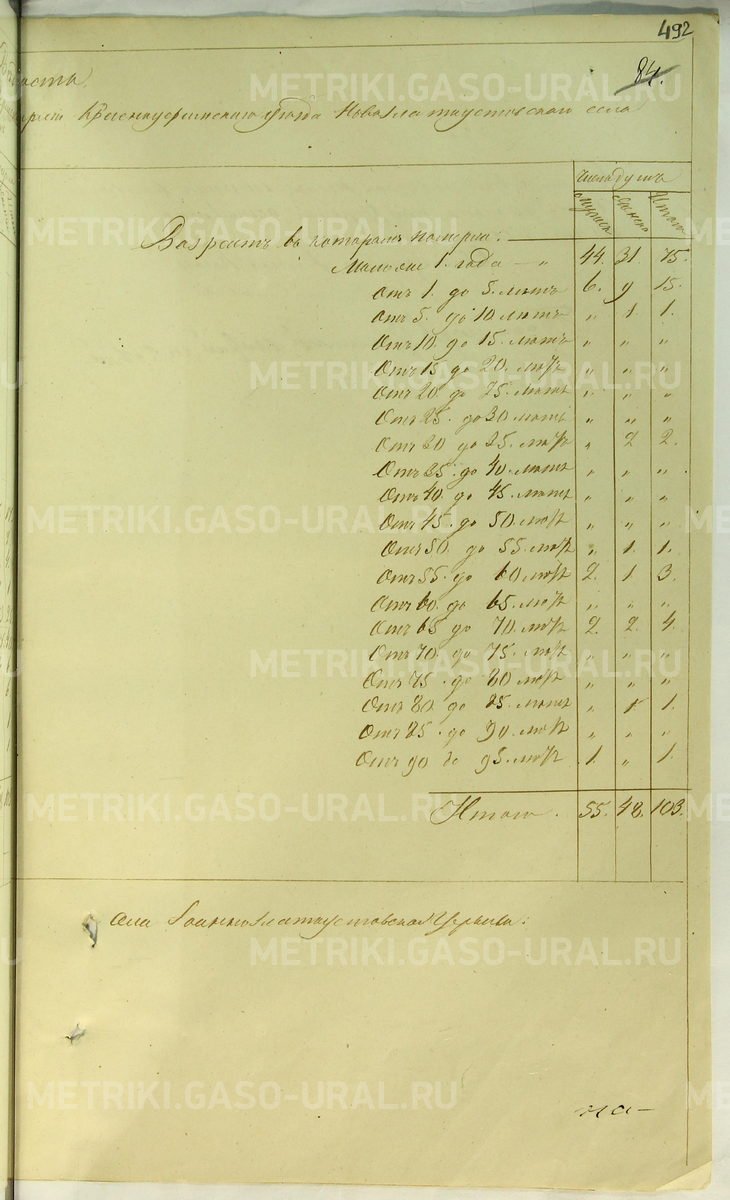 492
84.
METRIKI.GASO-URAL.RU
Красноуфимского уѣзда Новозлатоустовскаго села
число душъ
Мужска
Женска
Итого
Возрастъ въ которомъ померли:
Моложе 1. года — „ 44. 31 75.
Отъ 1. до 5. лѣтъ 6. 9 15.
Отъ 5. до 10 лѣтъ „ 1. 1.
Отъ 10. до 15. лѣтъ „ „ „
Отъ 15 до 20. лѣтъ „ „ „
Отъ 20 до 25. лѣтъ „ „ „
Отъ 25. до 30 лѣтъ „ „ „
Отъ 30 до 35. лѣтъ „ 2 2.
Отъ 35. до 40. лѣтъ „ „ „
Отъ 40. до 45. лѣтъ „ „ „
Отъ 45. до 50. лѣтъ „ „ „
Отъ 50. до 55. лѣтъ „ 1. 1.
Отъ 55. до 60 лѣтъ 2. 1. 3.
Отъ 60. до 65. лѣтъ „ „ „
Отъ 65 до 70. лѣтъ 2. 2. 4.
Отъ 70. до 75. лѣтъ „ „ „
Отъ 75. до 80 лѣтъ „ „ „
Отъ 80 до 85. лѣтъ „ 1 1.
Отъ 85. до 90. лѣтъ „ „ „
Отъ 90 до 95. лѣтъ 1. „ 1.
Итого. 55. 48. 103.
села Іоанно Златоустовская Церкви: